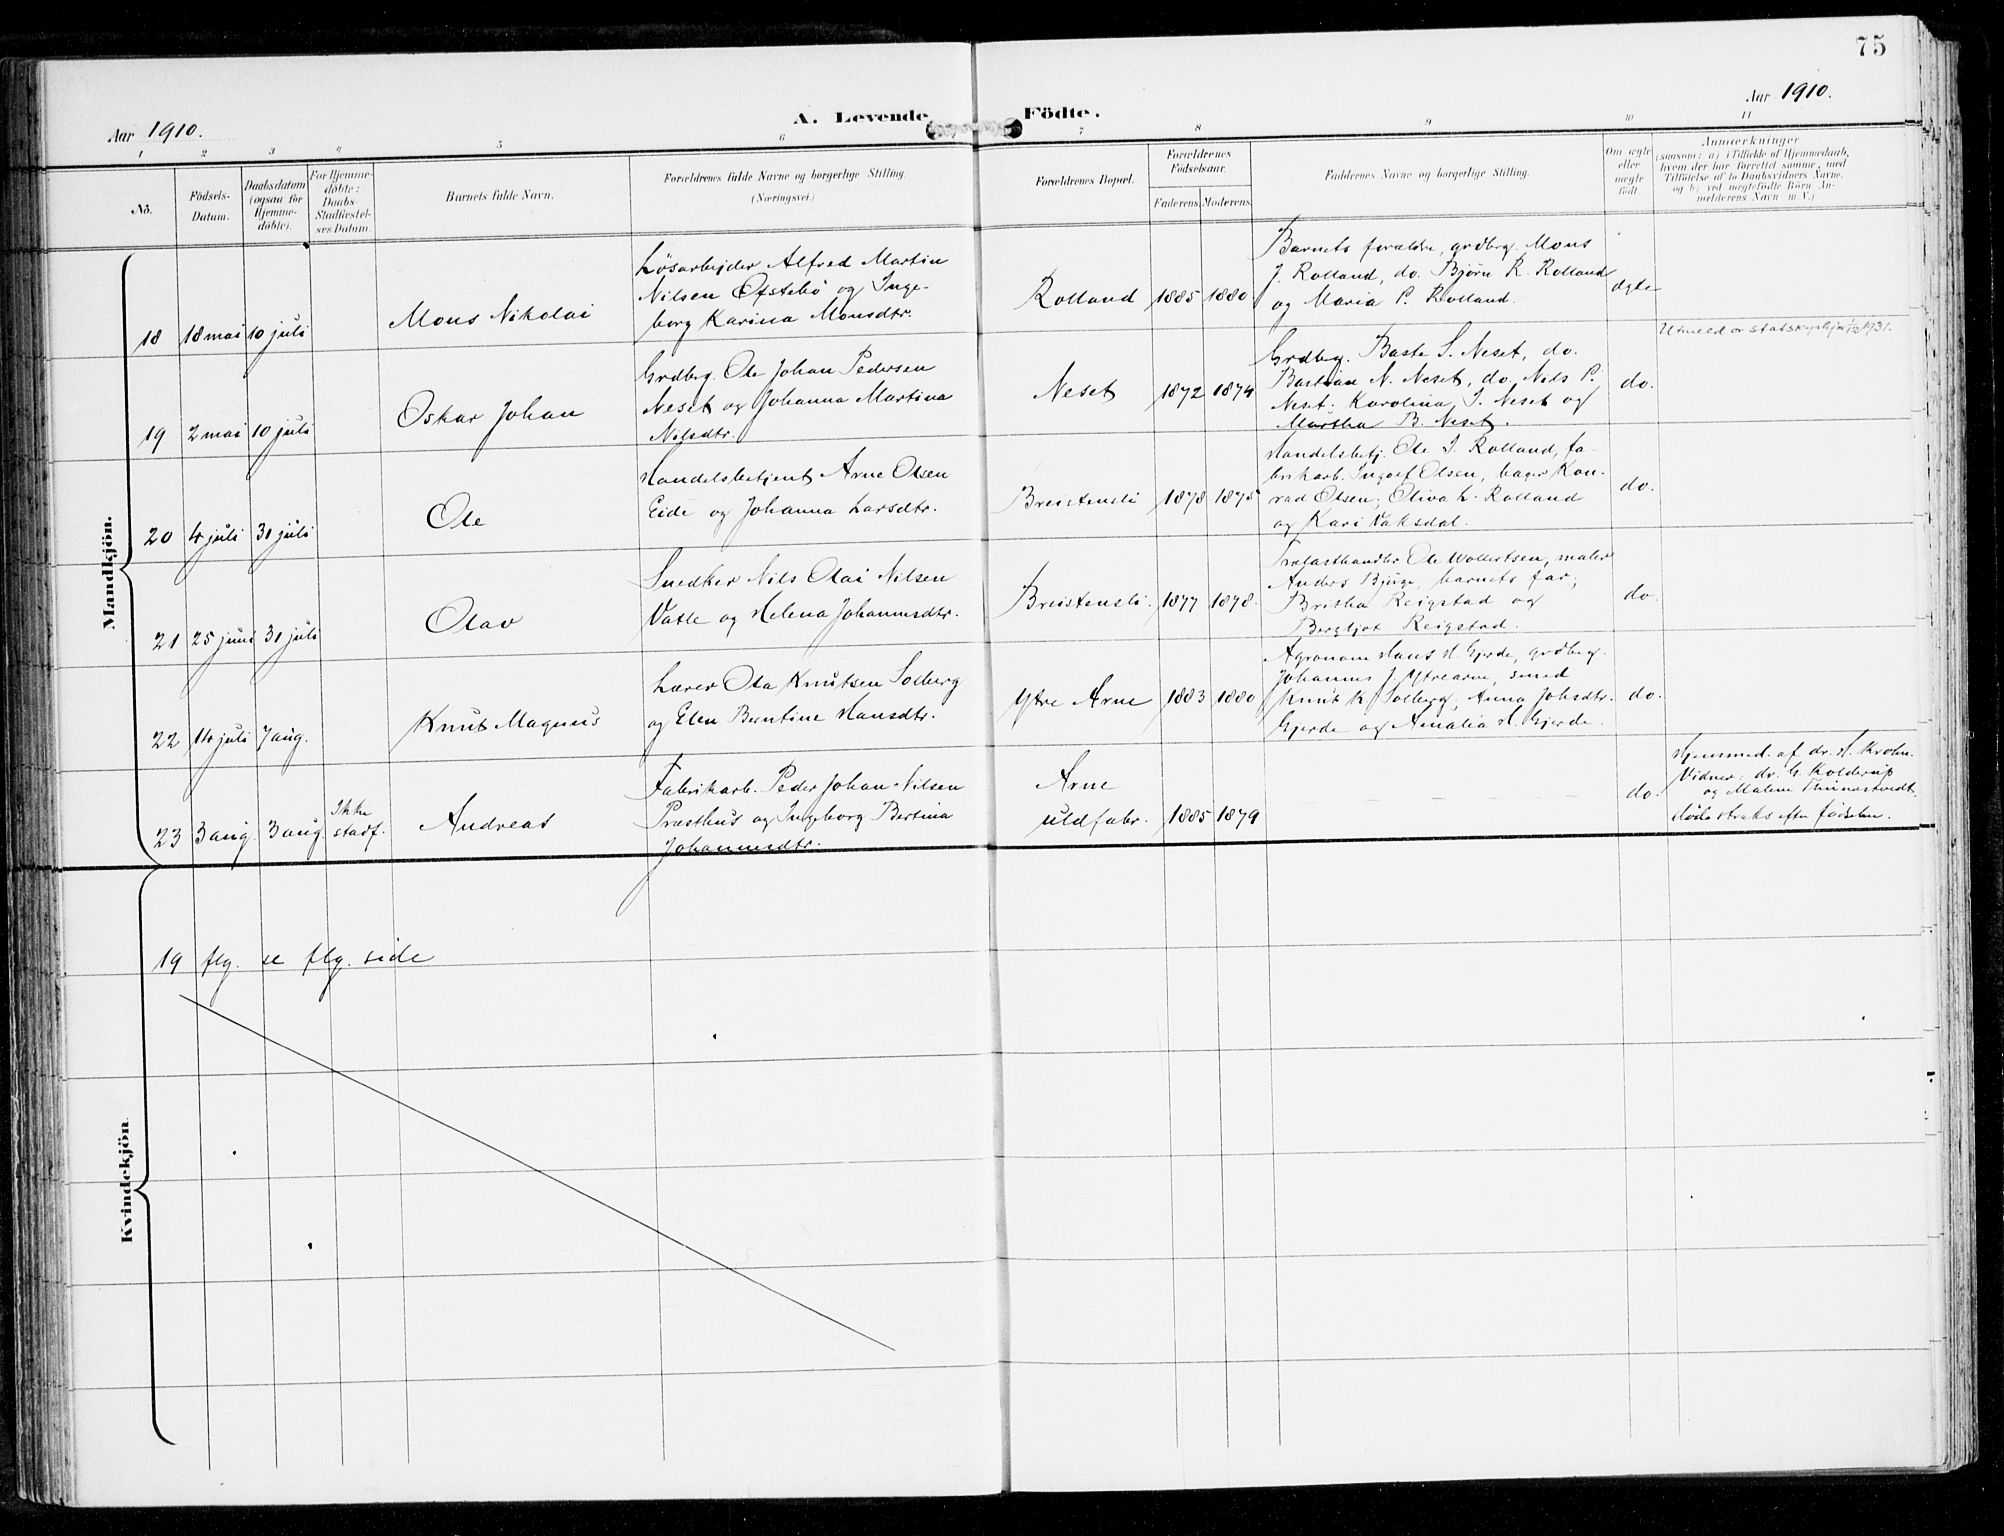 75
Aar 1910.
A. Levende Födte.
Aar 1910.
1 2 3 4 5 6 7 8 9 10 11
No.
Födsels-
Datum.
Daabsdatum
(ogsaa for
Hjemme-
döbte).
For Hjemme-
döbte:
Daabs-
Stadfæstel-
ses Datum.
Barnets fulde Navn.
Forældrenes fulde Navne og borgerlige Stilling.
(Næringsvei.)
Forældrenes Bopæl.
Forældrenes
Födselsaar.
Faderens. Moderens.
Faddernes Navne og borgerlige Stilling.
Om ægte
eller
uægte
födt.
Anmærkninger
(saasom: a) i Tilfælde af Hjemmedaab,
hvem der har forrettet samme, med
Tilföielse af to Daabsvidners Navne,
og b) ved uegtefödte Börn An-
melderens Navn m. V.)
Mandkjön.
18 18 mai 10 juli
Mons Nikolai
Løsarbejder Alfred Martin
Nilsen Ofstebö og Inge-
borg Karina Monsdtr.
Rolland 1885 1880
Barnets forældre, grdbrg. Mons
J. Rolland, do. Bjørn R. Rolland
og Maria P. Rolland.
ægte
19 2 mai 10 juli
Oskar Johan
Grdbrg. Ole Johan Pedersen
Neset og Johanna Martina
Nilsdtr.
Neset 1872 1874
Grdbrg. Baste S. Neset, do.
Bastian N. Neset, do. Nils P.
Neset. Karolina J. Neset og
Martha B. Neset.
do.
Utmeld or statskyrkja 1/12 1931.
20 4 juli 30 juli
Ole
Handelsbetjent Arne Olsen
Eide og Johanna Larsdtr.
Breistensli 1878 1875
Handelsbetj. Ole J. Rolland, fa-
brikarb. Ingolf Olsen, bager Kon-
rad Olsen, Oliva L. Rolland
og Kari Vaksdal.
do.
21 25 juni 30 juli
Olav
Snedker Nils Olai Nilsen
Vatle og Helena Johannesdtr.
Breistensli. 1877 1878.
Trælasthandler Ole Wollertsen, maler
Anders Bjørge, barnets far,
Britha Reigstad og
Bergljot Reigstad.
do.
22 14 juli 7 aug.
Knut Magnus
Lærer Ola Knutsen Solberg
og Elen Berntine Hansdtr.
Ytre Arne 1883 1880
Agronom Hans H. Gjerde, grdbrg.
Johannes J. Ytrearne, smed
Knut K. Solberg, Anna Johsdtr.
Gjerde og Amalia H. Gjerde.
do.
23 3 aug. 3 aug. Ikke
stadf.
Andreas
Fabrikarb. Peder Johan Nilsen
Præsthus og Ingeborg Bertina
Johannesdtr.
Arne
uldfabr. 1885 1879
do.
Hjemmed. af dr. H. Krohn.
Vidner: dr. G. Kolderup
og Malene
döde straks efter fødselen.
Kvindekjön.
19 flg. se flg. side